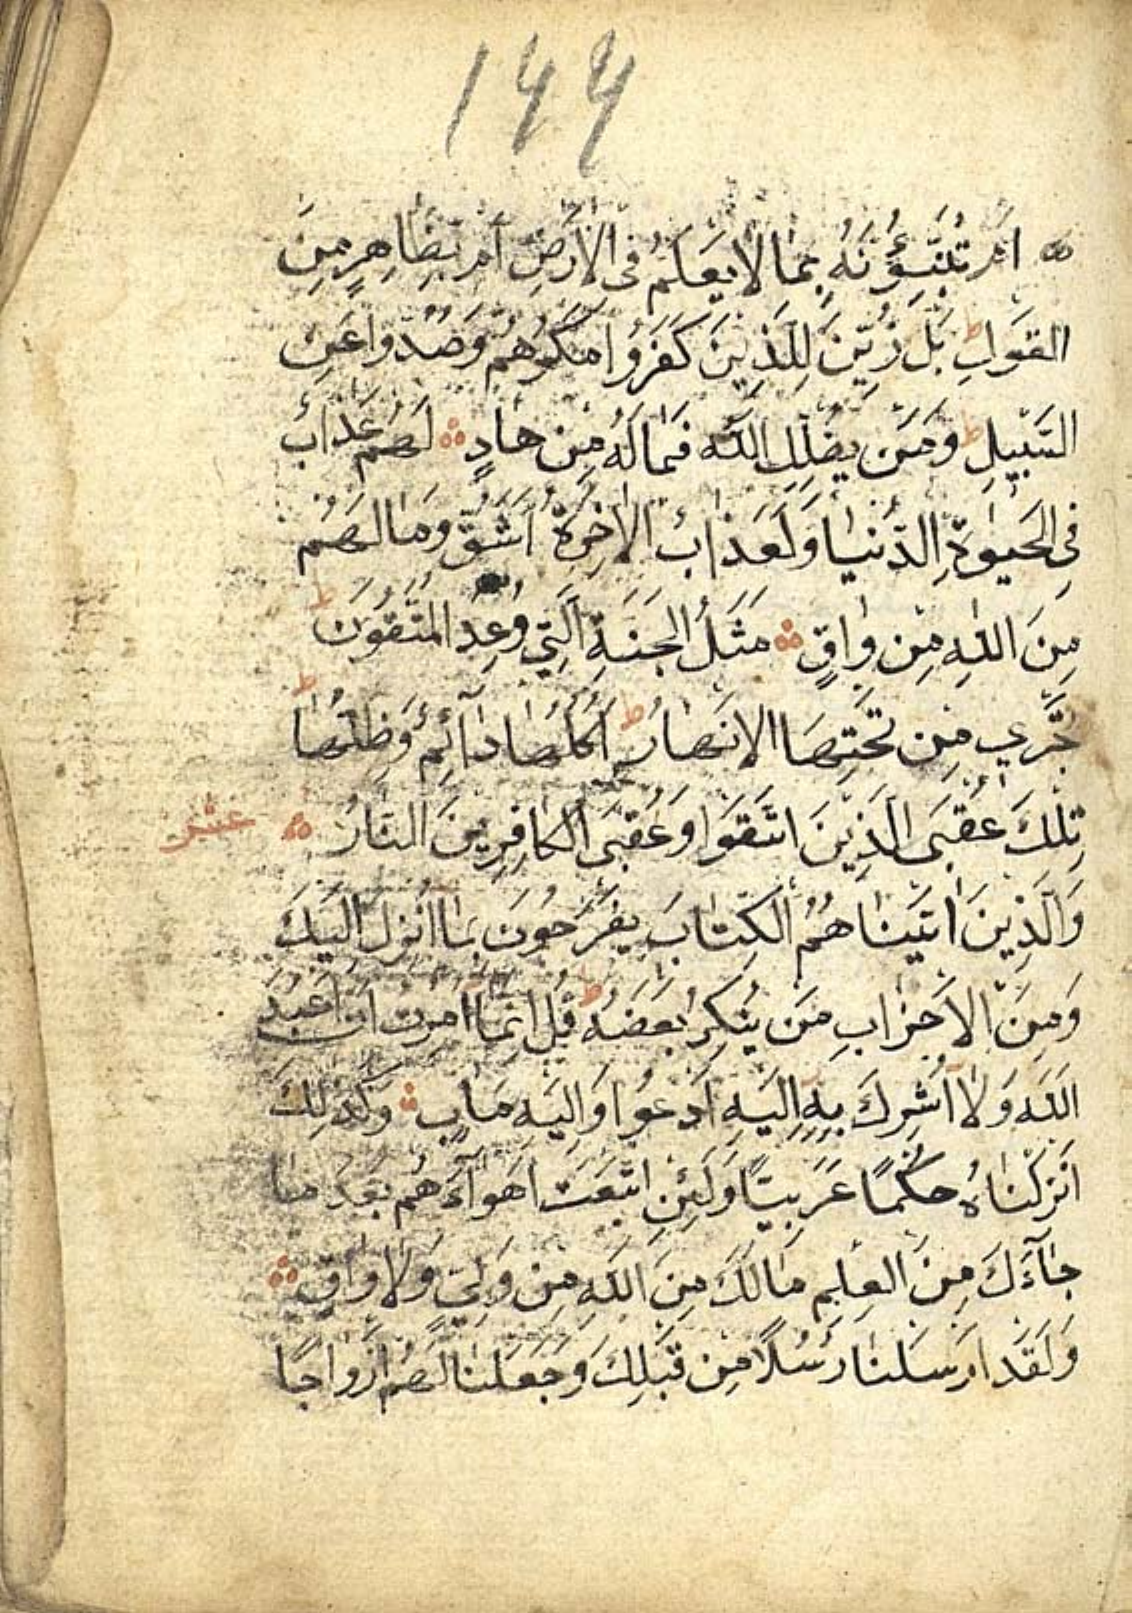 ١٤٤
ام تُنَبِّؤُنَهُ بِمَا لَا يَعْلَمُ فِى الْاَرْضِ اَمْ بِظَاهِرٍ مِنَ
الْقَوْلِ ط بَلْ زُيِّنَ لِلَّذِينَ كَفَرُوا مَكْرُهُمْ وَصُدُّوا عَنِ
السَّبِيلِ ط وَمَنْ يُضْلِلِ اللّٰهُ فَمَا لَهُ مِنْ هَادٍ لَهُمْ عَذَابٌ
فِى الْحَيٰوةِ الدُّنْيَا وَلَعَذَابُ الْاٰخِرَةِ اَشَقُّ وَمَا لَهُمْ
مِنَ اللّٰهِ مِنْ وَاقٍ مَثَلُ الْجَنَّةِ الَّتِي وُعِدَ الْمُتَّقُونَ ط
تَجْرِي مِنْ تَحْتِهَا الْاَنْهَارُ ط اُكُلُهَا دَآئِمٌ وَظِلُّهَا ط
تِلْكَ عُقْبَى الَّذِينَ اتَّقَوْا وَعُقْبَى الْكَافِرِينَ النَّارُ عشر
وَالَّذِينَ اٰتَيْنَاهُمُ الْكِتَابَ يَفْرَحُونَ بِمَا اُنْزِلَ اِلَيْكَ
وَمِنَ الْاَحْزَابِ مَنْ يُنْكِرُ بَعْضَهُ ط قُلْ اِنَّمَا اُمِرْتُ اَنْ اَعْبُدَ
اللّٰهَ وَلَا اُشْرِكَ بِهِ اِلَيْهِ اَدْعُوا وَاِلَيْهِ مَاٰبِ وَكَذٰلِكَ
اَنْزَلْنَاهُ حُكْمًا عَرَبِيًّا وَلَئِنِ اتَّبَعْتَ اَهْوَآءَهُمْ بَعْدَ مَا
جَآءَكَ مِنَ الْعِلْمِ مَا لَكَ مِنَ اللّٰهِ مِنْ وَلِيٍّ وَلَا وَاقٍ
وَلَقَدْ اَرْسَلْنَا رُسُلًا مِنْ قَبْلِكَ وَجَعَلْنَا لَهُمْ اَزْوَاجًا